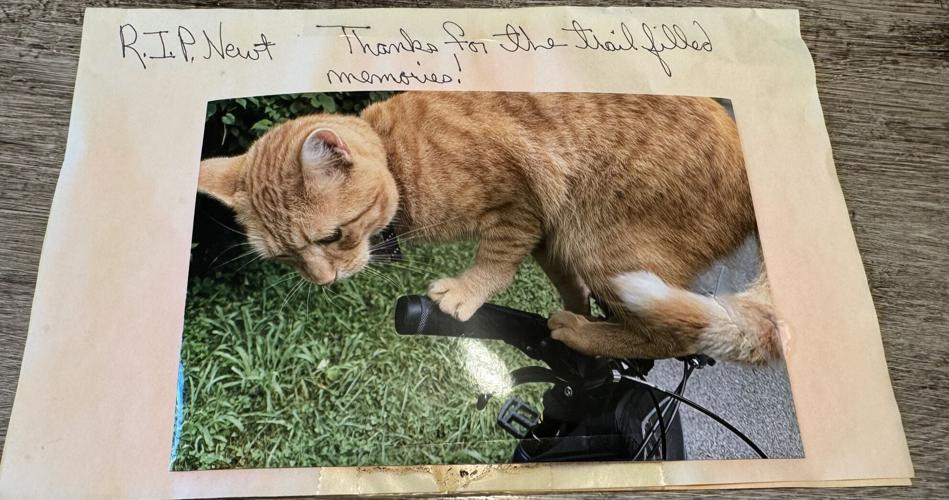 R.I.P. Newt Thanks for the trail filled
memories!